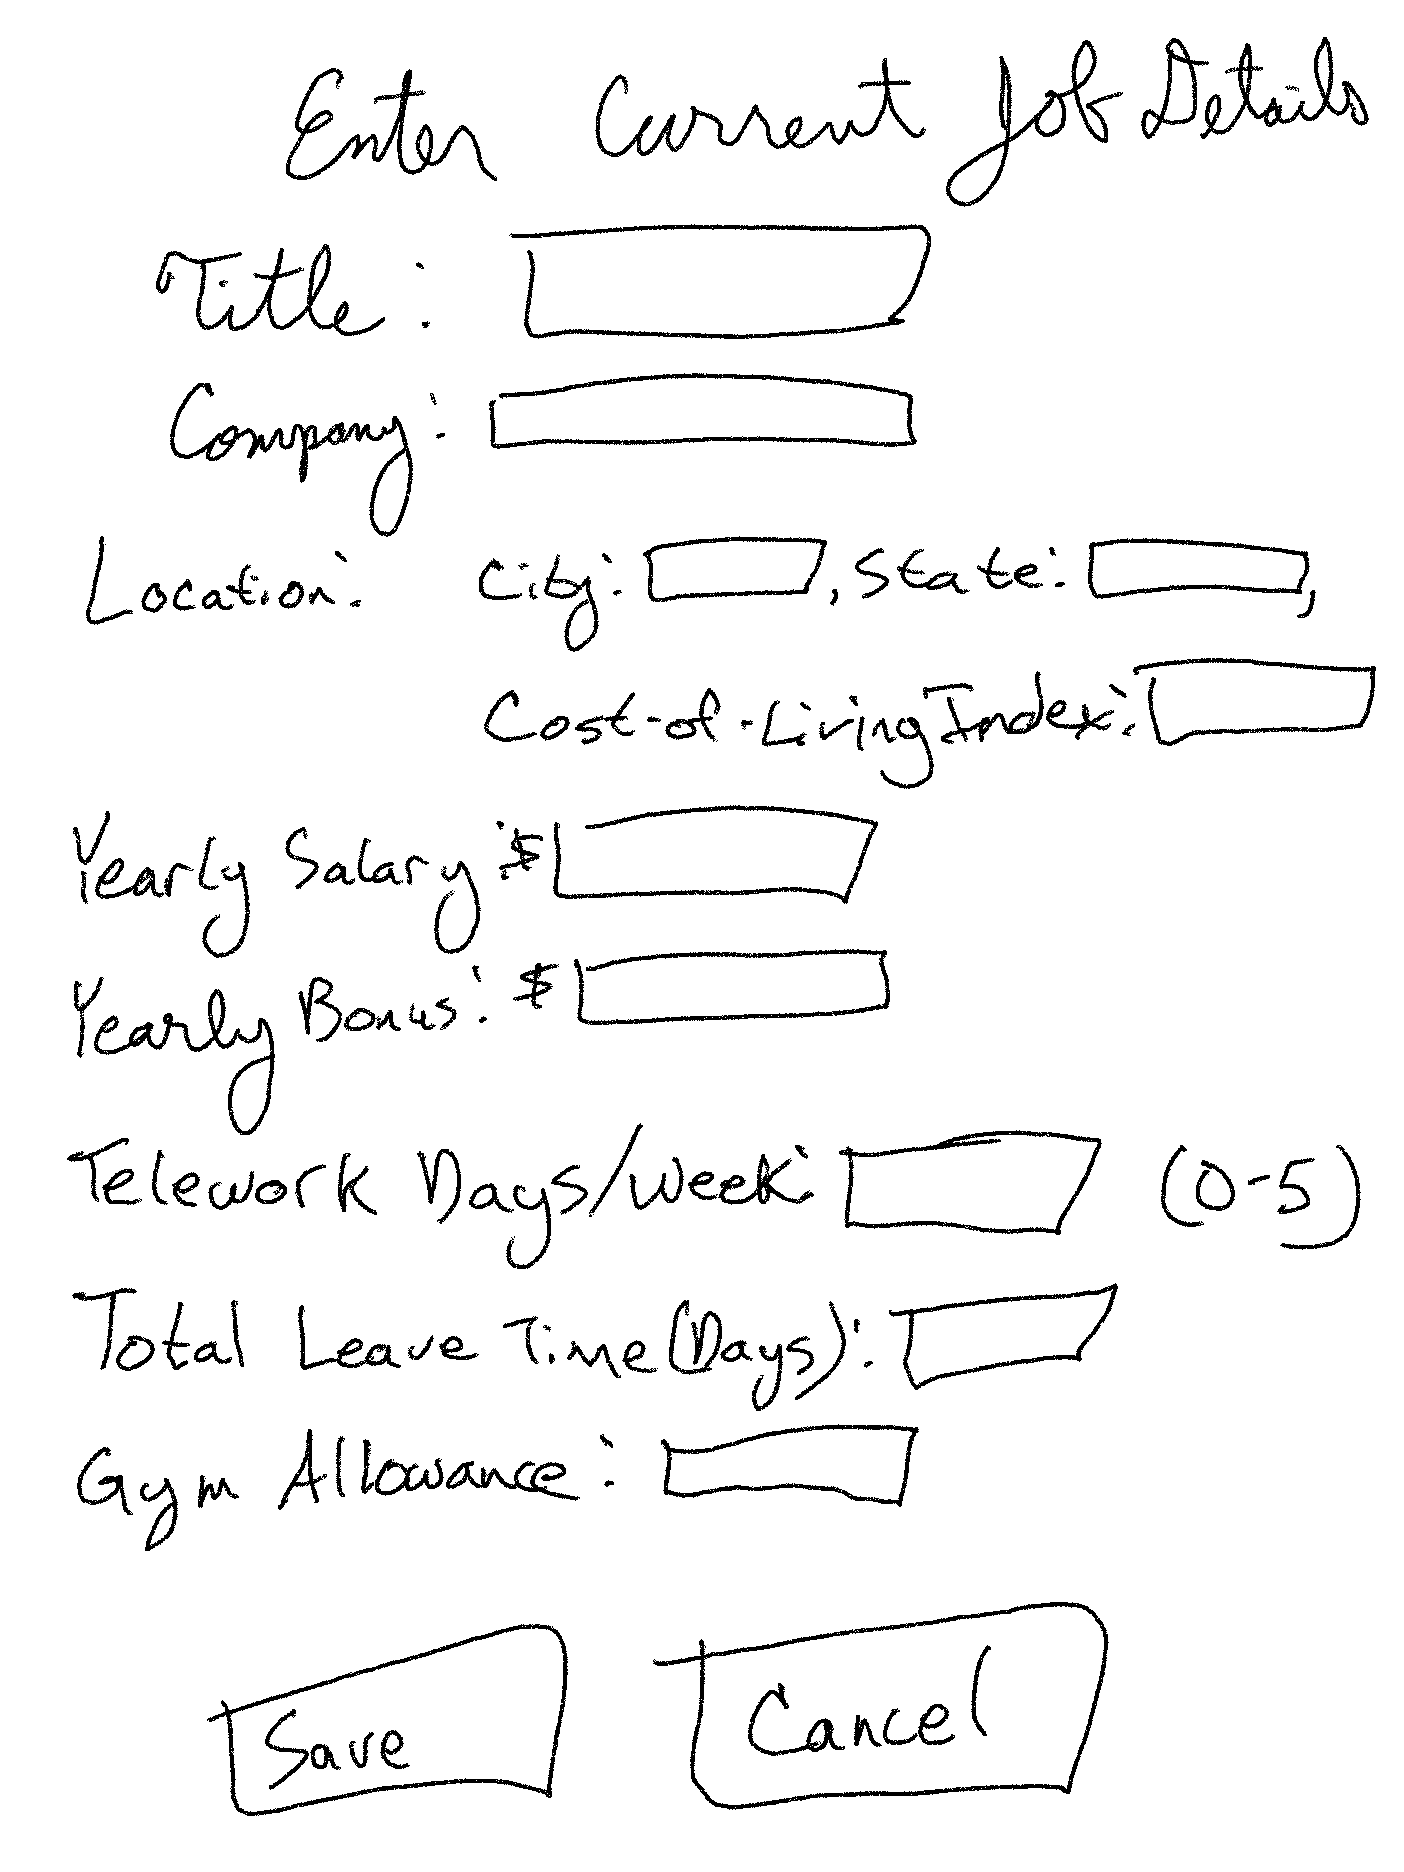 Enter Current Job Details
Title:
Company:
Location: City: , State: ,
Cost-of-Living Index:
Yearly Salary: $
Yearly Bonus: $
Telework Days/Week: (0-5)
Total Leave Time (Days):
Gym Allowance:
Save Cancel